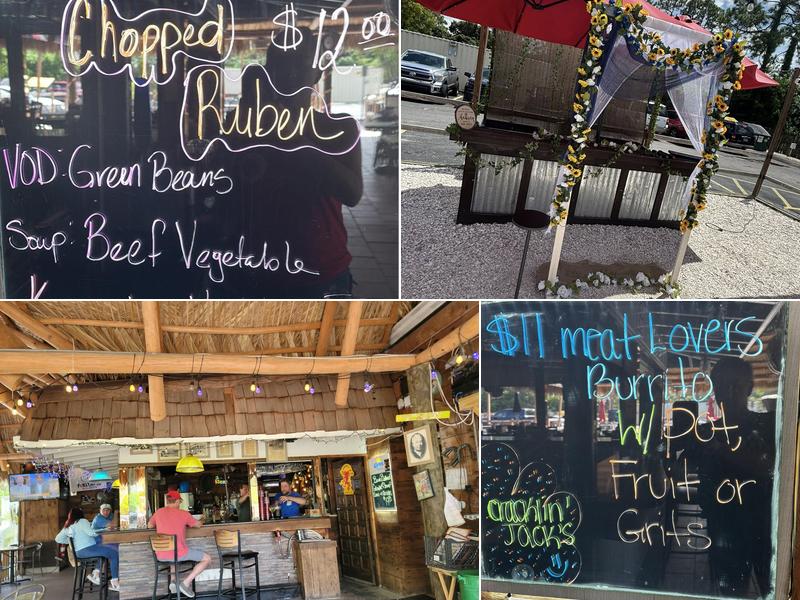 Chopped $12.00
Ruben
VOD: Green Beans
Soup: Beef Vegetable
$11 meat Lovers
Burrito
W/ Pot,
Fruit or
Grits
cracklin'
Jack's